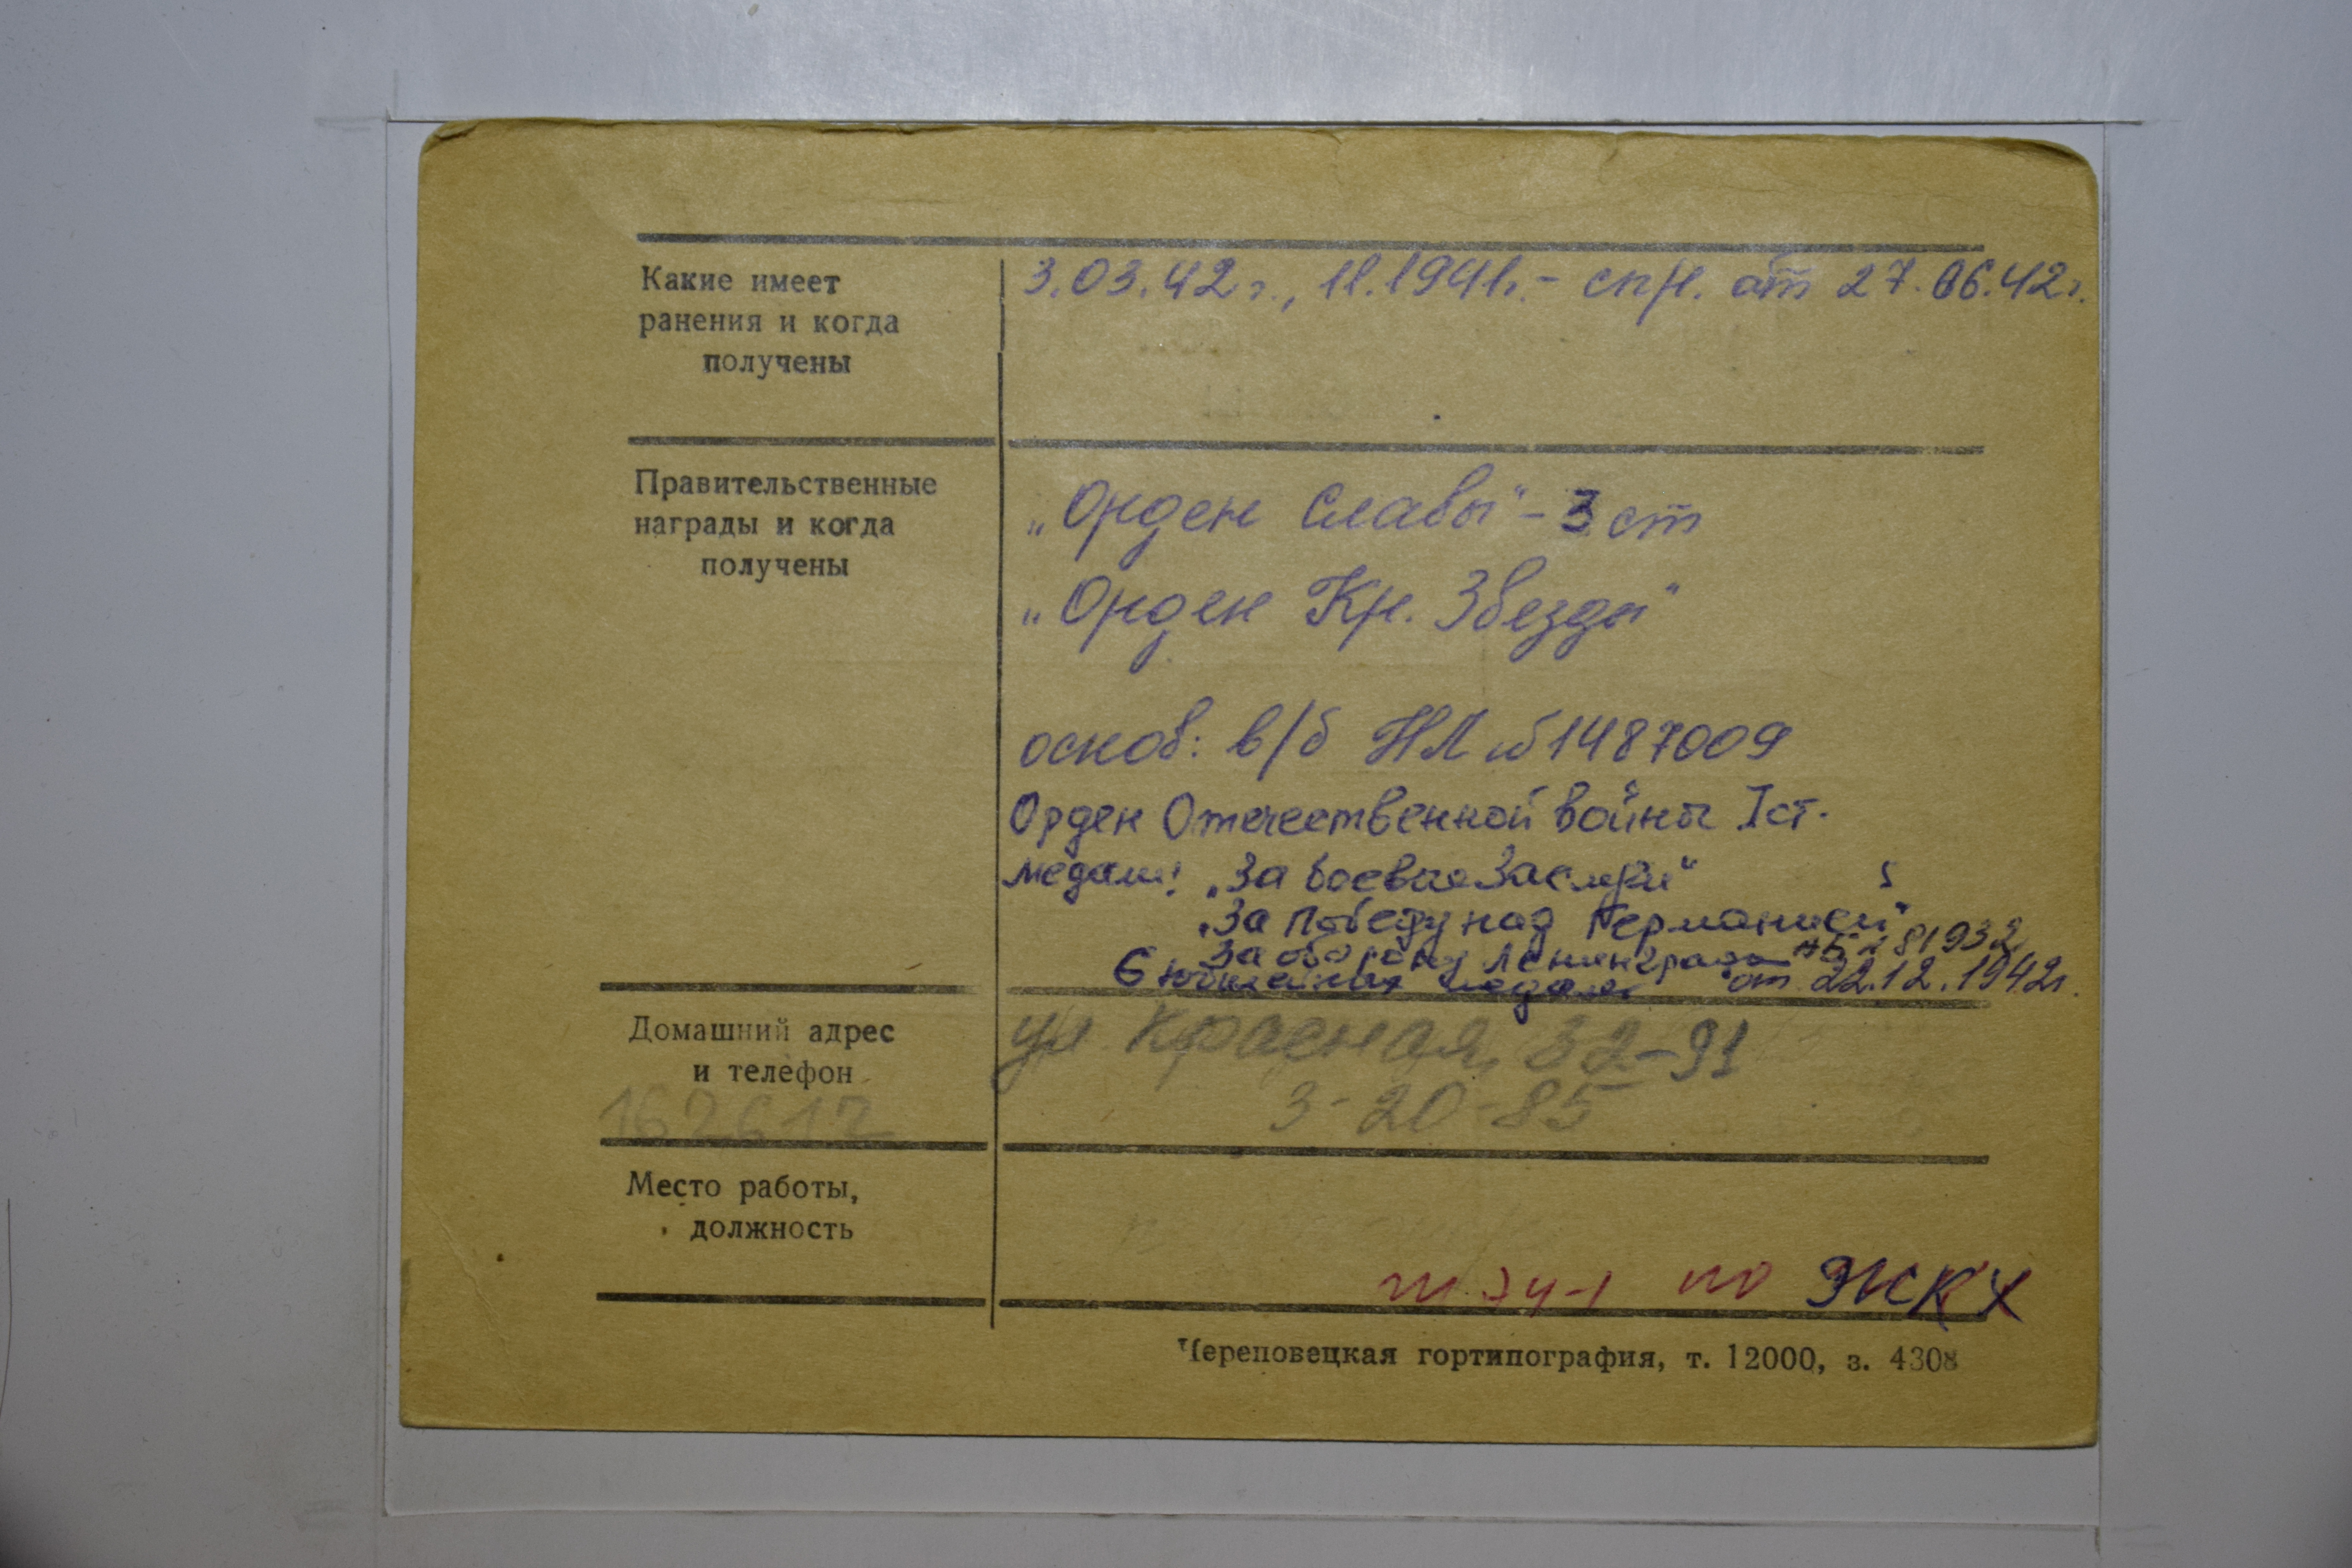 Какие имеет
ранения и когда
получены
3.03.42г., 11.1941г. - спр. от 27.06.42г.
Правительственные
награды и когда
получены
„Орден Славы" - 3 ст
„Орден Кр. Звезды"
основ: в/б НЛ №1487009
Орден Отечественной войны I ст.
медали: „За боевые заслуги"
„За победу над Германией"
За оборону Ленинграда 81932
6 юбилейных медалей от 22.12.1942г.
Домашний адрес
и телефон
162612
ул Красная, 32-91
3-20-85
Место работы,
должность
по ЖКХ
Череповецкая гортипография, т. 12000, з. 4308